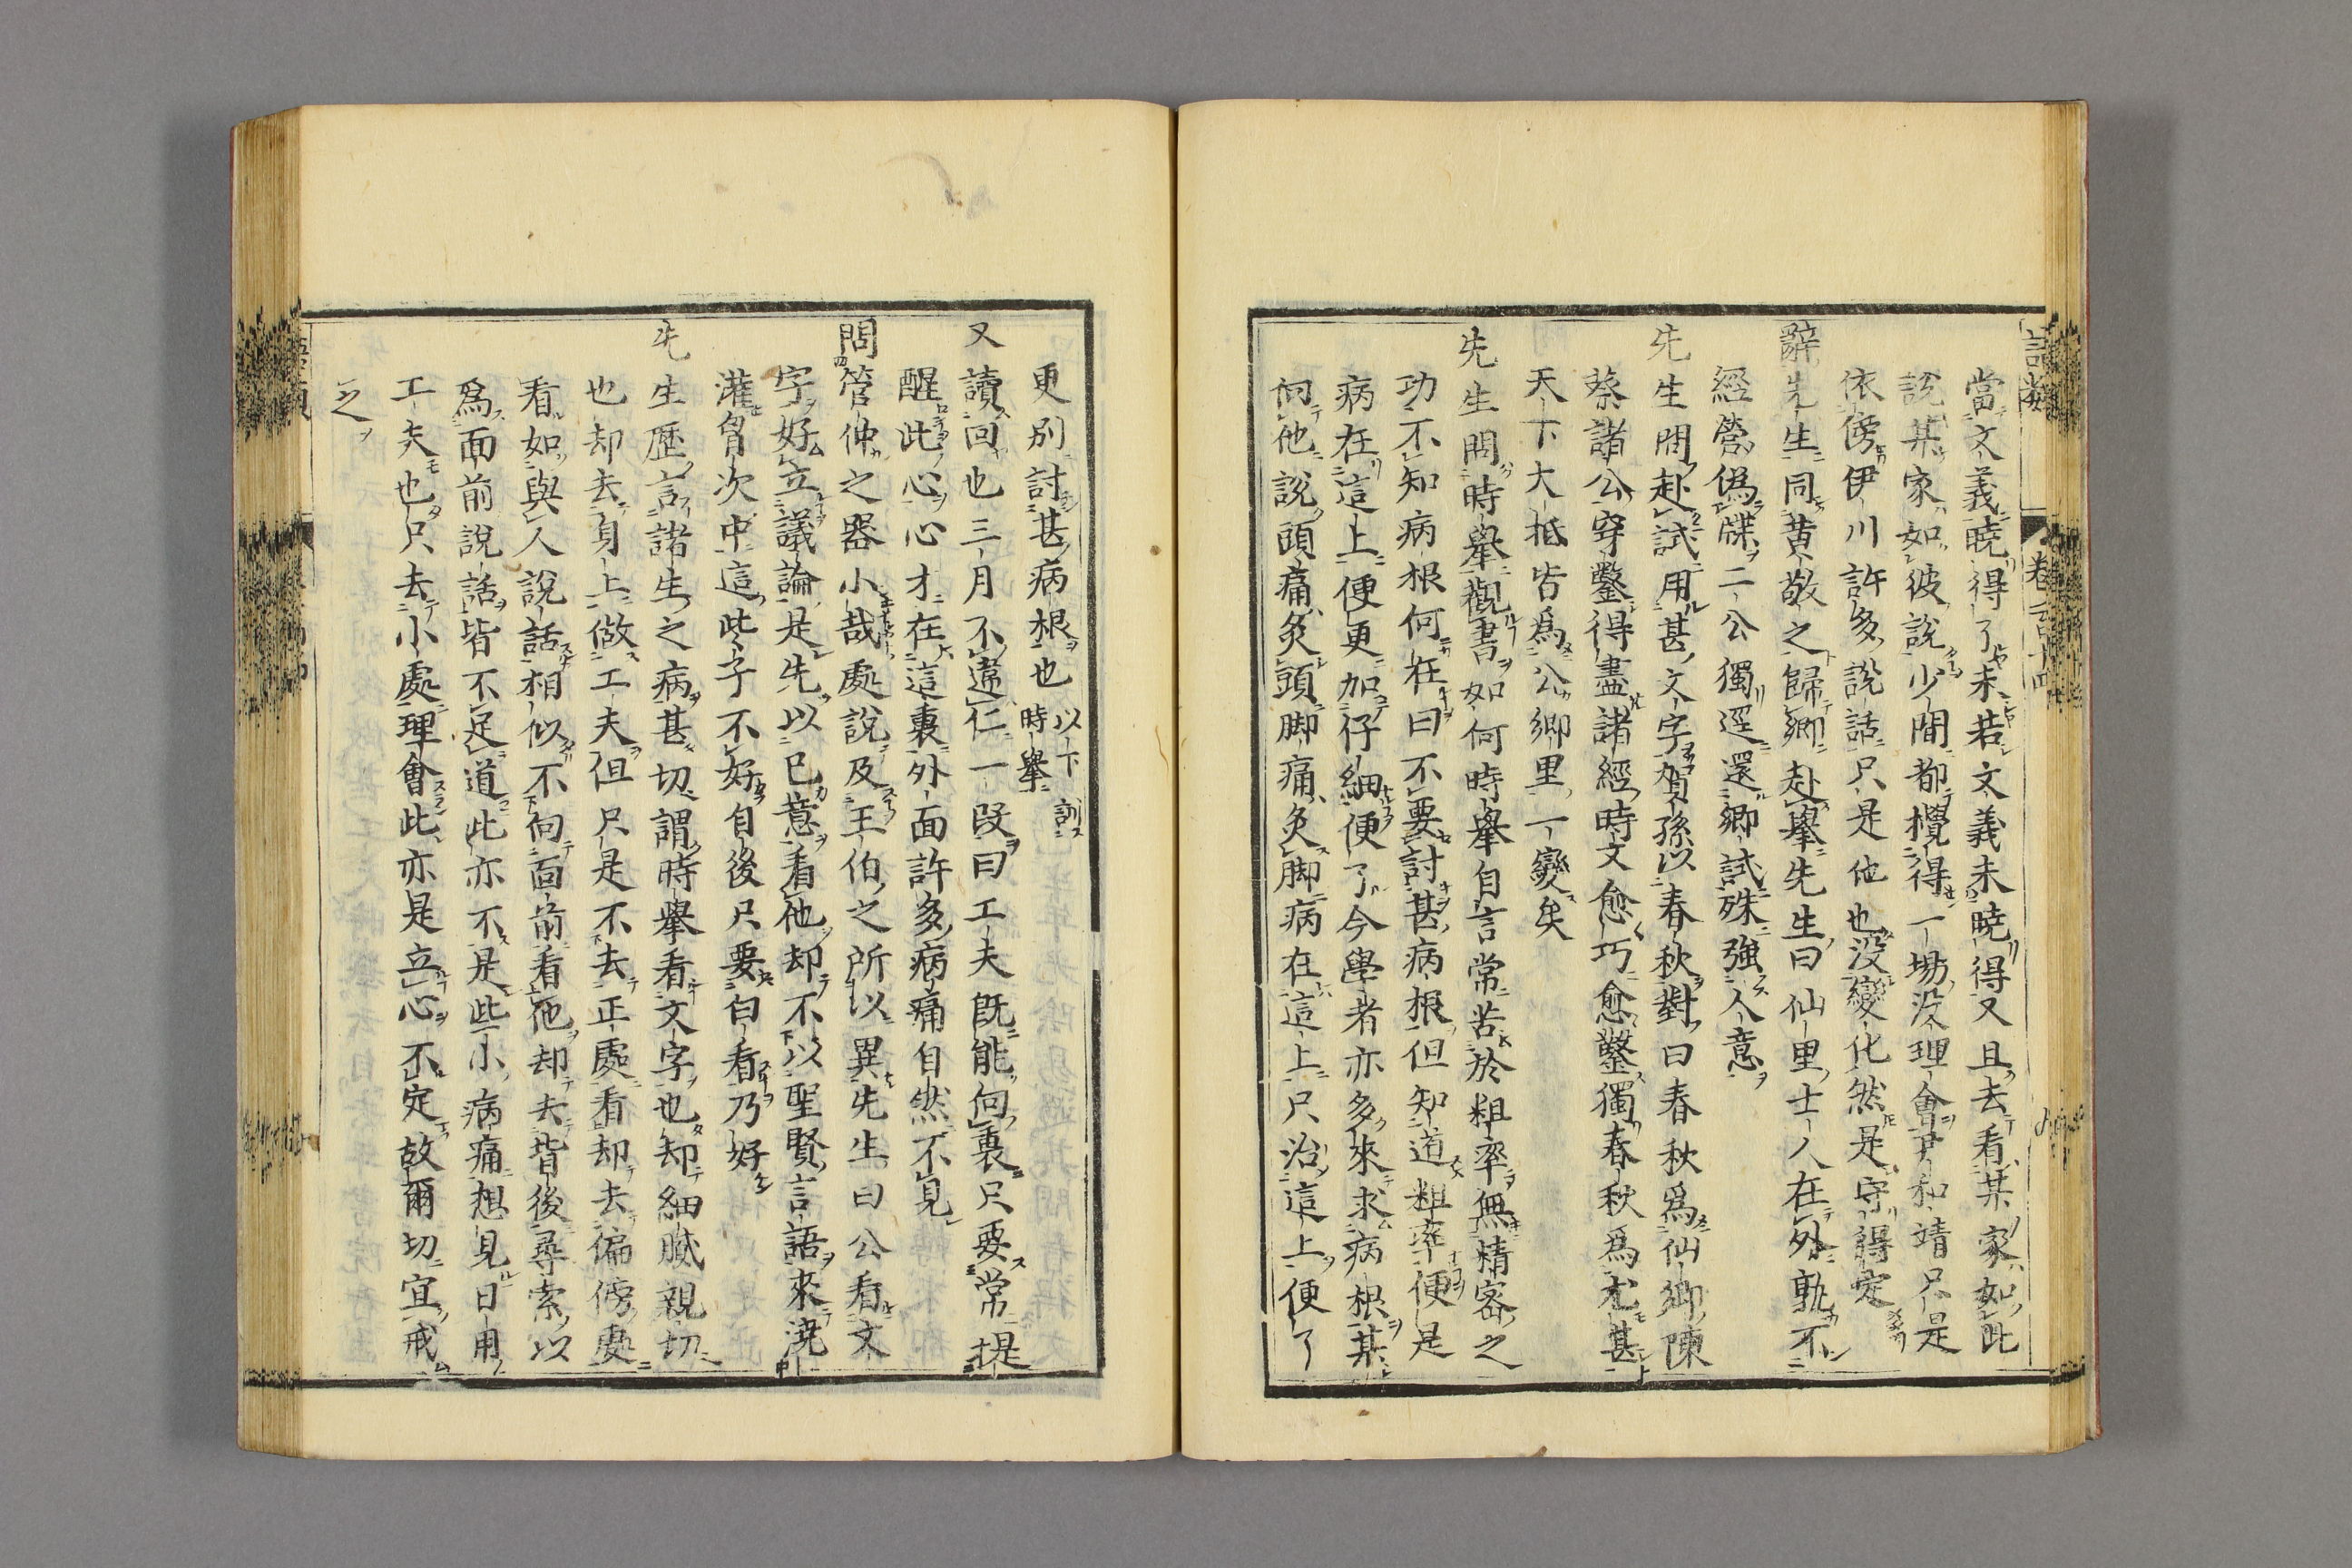 當文義曉得了未若文義未曉得又且去看某家如此
說某家如彼說少間都攪得一場没理會尹和靖只是
依傍伊川許多說話只是他也没變化然是守得定
辭先生同黄敬之歸鄉赴擧先生曰仙里士人在外孰不
經營偽牒二公獨逕還鄉試殊強人意
先生問赴試用甚文字賀孫以春秋對曰春秋爲仙鄉陳
蔡諸公穿鑿得盡諸經時文愈巧愈鑿獨春秋爲尤甚
天下大抵皆爲公鄉里一變矣
先生問時擧觀書如何時擧自言常苦於粗率無精宻之
功不知病根何在曰不要討甚病根但知道粗率便是
病在這上便更加仔細便了今學者亦多來求病根某
向他說頭痛灸頭脚痛灸脚病在這上只治這上便了
更别討甚病根也 以下訓時擧
又讀回也三月不違仁一段曰工夫旣能向裏只要常提
醒此心心才在這裏外面許多病痛自然不見
問管仲之器小哉處說及王伯之所以異先生曰公看文
字好立議論是先以已意看他却不以聖賢言語來澆
灌胷次中這些子不好自後只要白看乃好
先生歷言諸生之病甚切謂時擧看文字也却細膩親切
也却去身上做工夫但只是不去正處看却去偏傍處
看如與人說話相似不向面前看他却去背後尋索以
爲面前說話皆不足道此亦不是些小病痛想見日用
工夫也只去小處理會此亦是立心不定故爾切宜戒
之
語類 卷一百十四